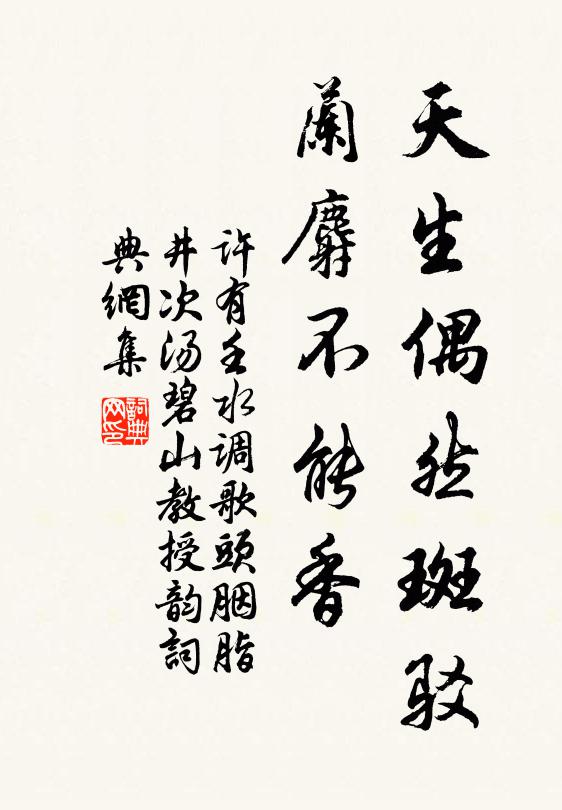 天生偶然斑驳
蘭麝不能香
许有壬水调歌頭胭脂
井次汤碧山教授韵詞
典網集
詞典网印